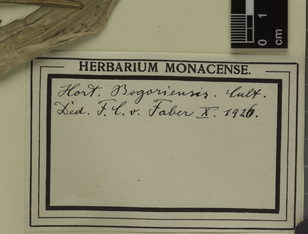 0 1
cm
HERBARIUM MONACENSE.
Hort. Bogoriensis. Cult.
Ded. F. C. v. Faber X. 1926.